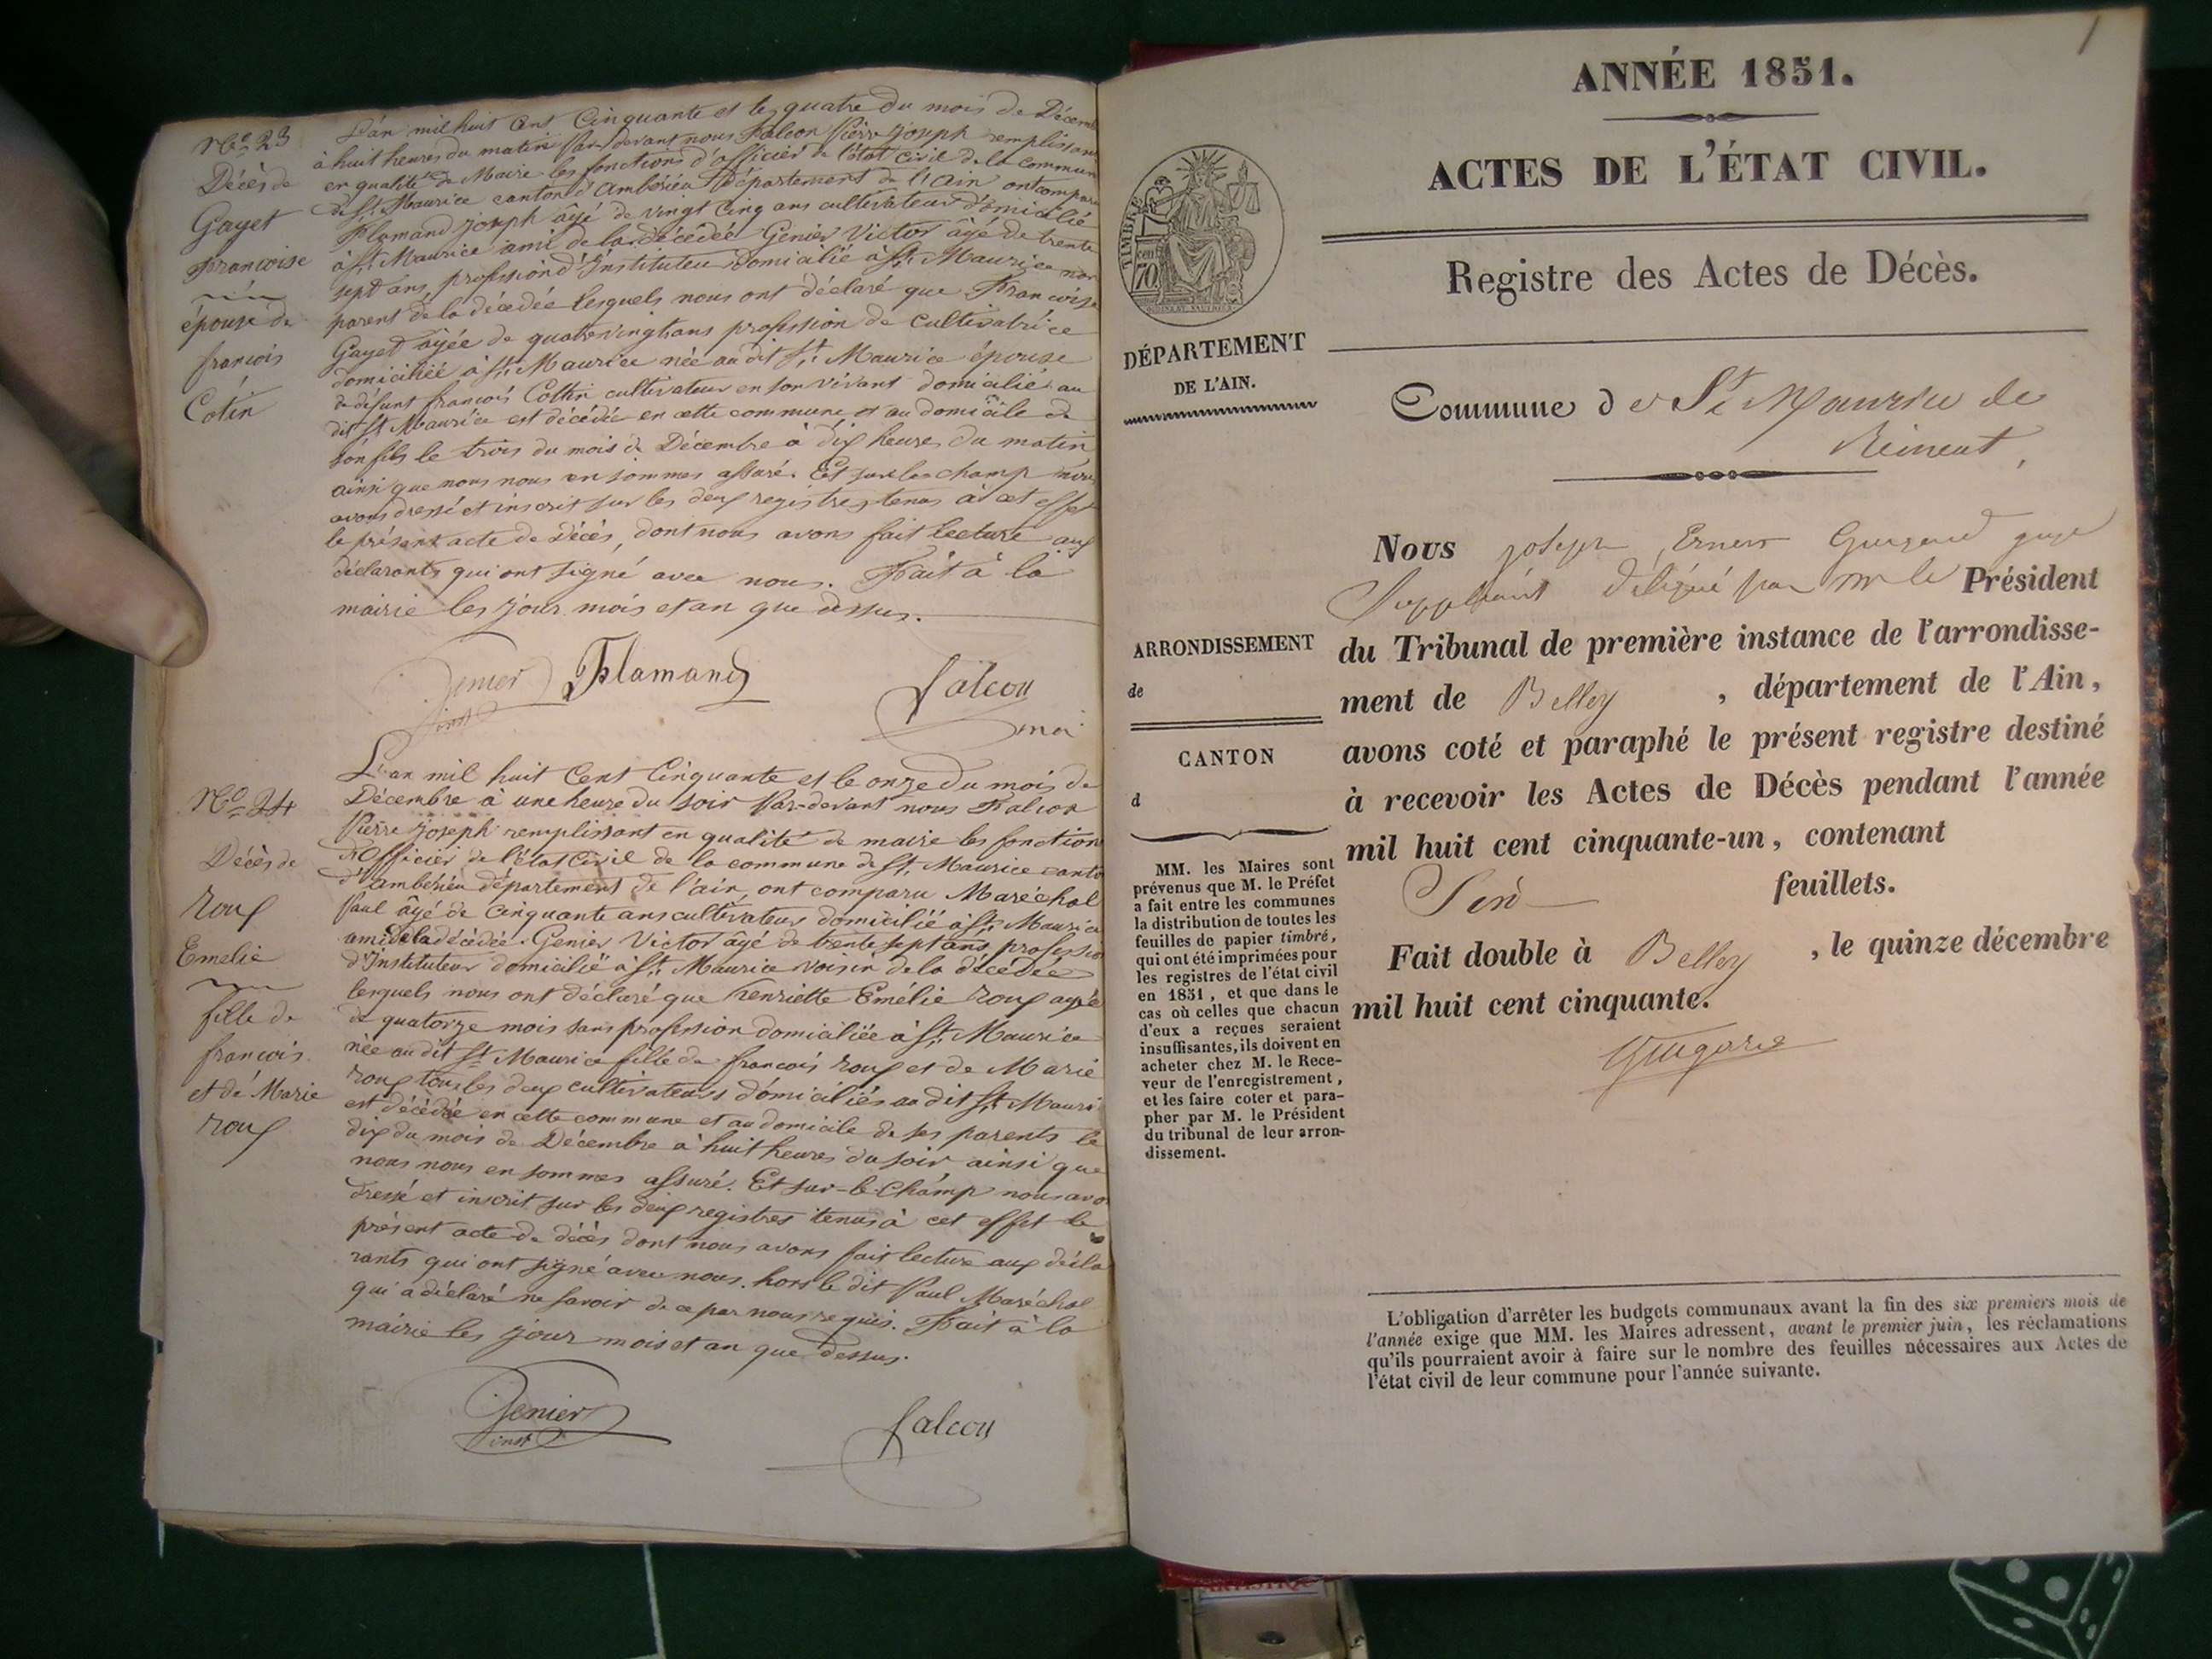 Nº 23
Décès de
Gayet
françoise
épouse de
françois
Cotin
L'an mil huit Cent Cinquante et le quatre du mois de Décem
à huit heures du matin Par-devant nous Falcon Pierre joseph remplissan
en qualité de Maire les fonctions d'officier de l'état civil de la Commun
de St. Maurice canton d'Ambérieu Département de l'Ain ont compar
Flamand joseph âgé de vingt Cinq ans cultivateur domicilié
à St. Maurice ami de la décédée Genier Victor âgé de trente
sept ans, profession d'Instituteur domicilié à St. Maurice non
parent de la décédée lesquels nous ont déclaré que Françoise
Gayet âgée de quatrevingt ans profession de Cultivatrice
domiciliée à St. Maurice née au dit St. Maurice épouse
de défunt françois Cottin cultivateur en son vivant domicilié au
dit St Maurice est décédée en cette commune et au domicile de
son fils le trois du mois de Décembre à dix heures du matin
ainsi que nous nous en sommes assuré. Et sur le champ nous
avons dressé et inscrit sur les deux registres tenus à cet effet
le présent acte de Décès, dont nous avons fait lecture aux
déclarants qui ont signé avec nous. Fait à la
mairie les jour mois et an que dessus.
Genier Flamand falcon
inst mai
Nº 24
Décès de
roux
Emelie
fille de
françois
et de Marie
roux
L'an mil huit Cent Cinquante et le onze du mois de
Décembre à une heure du soir Par-devant nous Falcon
Pierre joseph remplissant en qualité de maire les fonction
d'Officier de l'état Civil de la commune de St. Maurice canto
d'ambérieu département de l'ain, ont comparu Maréchal
Paul âgé de Cinquante ans cultivateur domicilié à St. Maurice
ami de la décédée. Genier Victor âgé de trente sept ans professio
d'Instituteur domicilié à St. Maurice voisin de la décédée
lesquels nous ont déclaré que henriette Emélie roux agée
de quatorze mois sans profession domiciliée à St. Maurice
née au dit St Maurice fille de françois roux et de Marie
roux tous les deux cultivateurs domiciliés au dit St. Mauri
est décédée en cette commune et au domicile de ses parents le
dix du mois de Décembre à huit heures du soir ainsi que
nous nous en sommes assuré. Et sur-le-Champ nous avo
dressé et inscrit sur les deux registres tenus à cet effet le
présent acte de décès dont nous avons fait lecture aux décla
rants qui ont signé avec nous. hors le dit Paul Maréchal
qui a déclaré ne savoir de ce par nous requis. Fait à la
mairie les jour mois et an que dessus.
Genier falcon
inst
1
ANNÉE 1851.
ACTES DE L'ÉTAT CIVIL.
Registre des Actes de Décès.
TIMBRE
70 cent
DÉPARTEMENT
DE L'AIN.
ARRONDISSEMENT
de
CANTON
d
MM. les Maires sont
prévenus que M. le Préfet
a fait entre les communes
la distribution de toutes les
feuilles de papier timbré,
qui ont été imprimées pour
les registres de l'état civil
en 1851, et que dans le
cas où celles que chacun
d'eux a reçues seraient
insuffisantes, ils doivent en
acheter chez M. le Rece-
veur de l'enregistrement,
et les faire coter et para-
pher par M. le Président
du tribunal de leur arron-
dissement.
Commune de St Maurice de
Nous joseph Ernest juge
Suppléant délégué par Mr le Président
du Tribunal de première instance de l'arrondisse-
ment de Belley , département de l'Ain,
avons coté et paraphé le présent registre destiné
à recevoir les Actes de Décès pendant l'année
mil huit cent cinquante-un, contenant
feuillets.
Fait double à Belley , le quinze décembre
mil huit cent cinquante.
L'obligation d'arrêter les budgets communaux avant la fin des six premiers mois de
l'année exige que MM. les Maires adressent, avant le premier juin, les réclamations
qu'ils pourraient avoir à faire sur le nombre des feuilles nécessaires aux Actes de
l'état civil de leur commune pour l'année suivante.